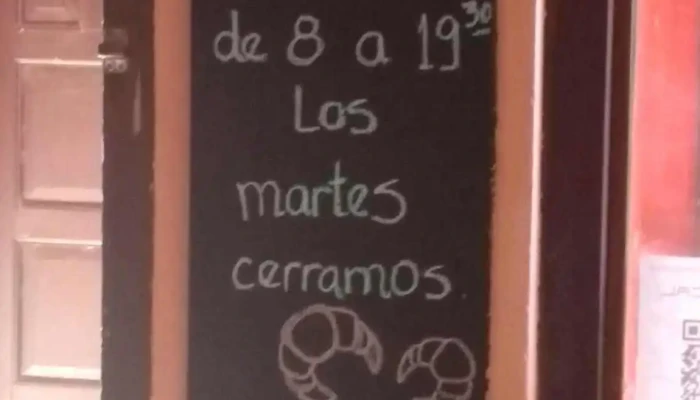 de 8 a 19³⁰
Los
martes
cerramos.